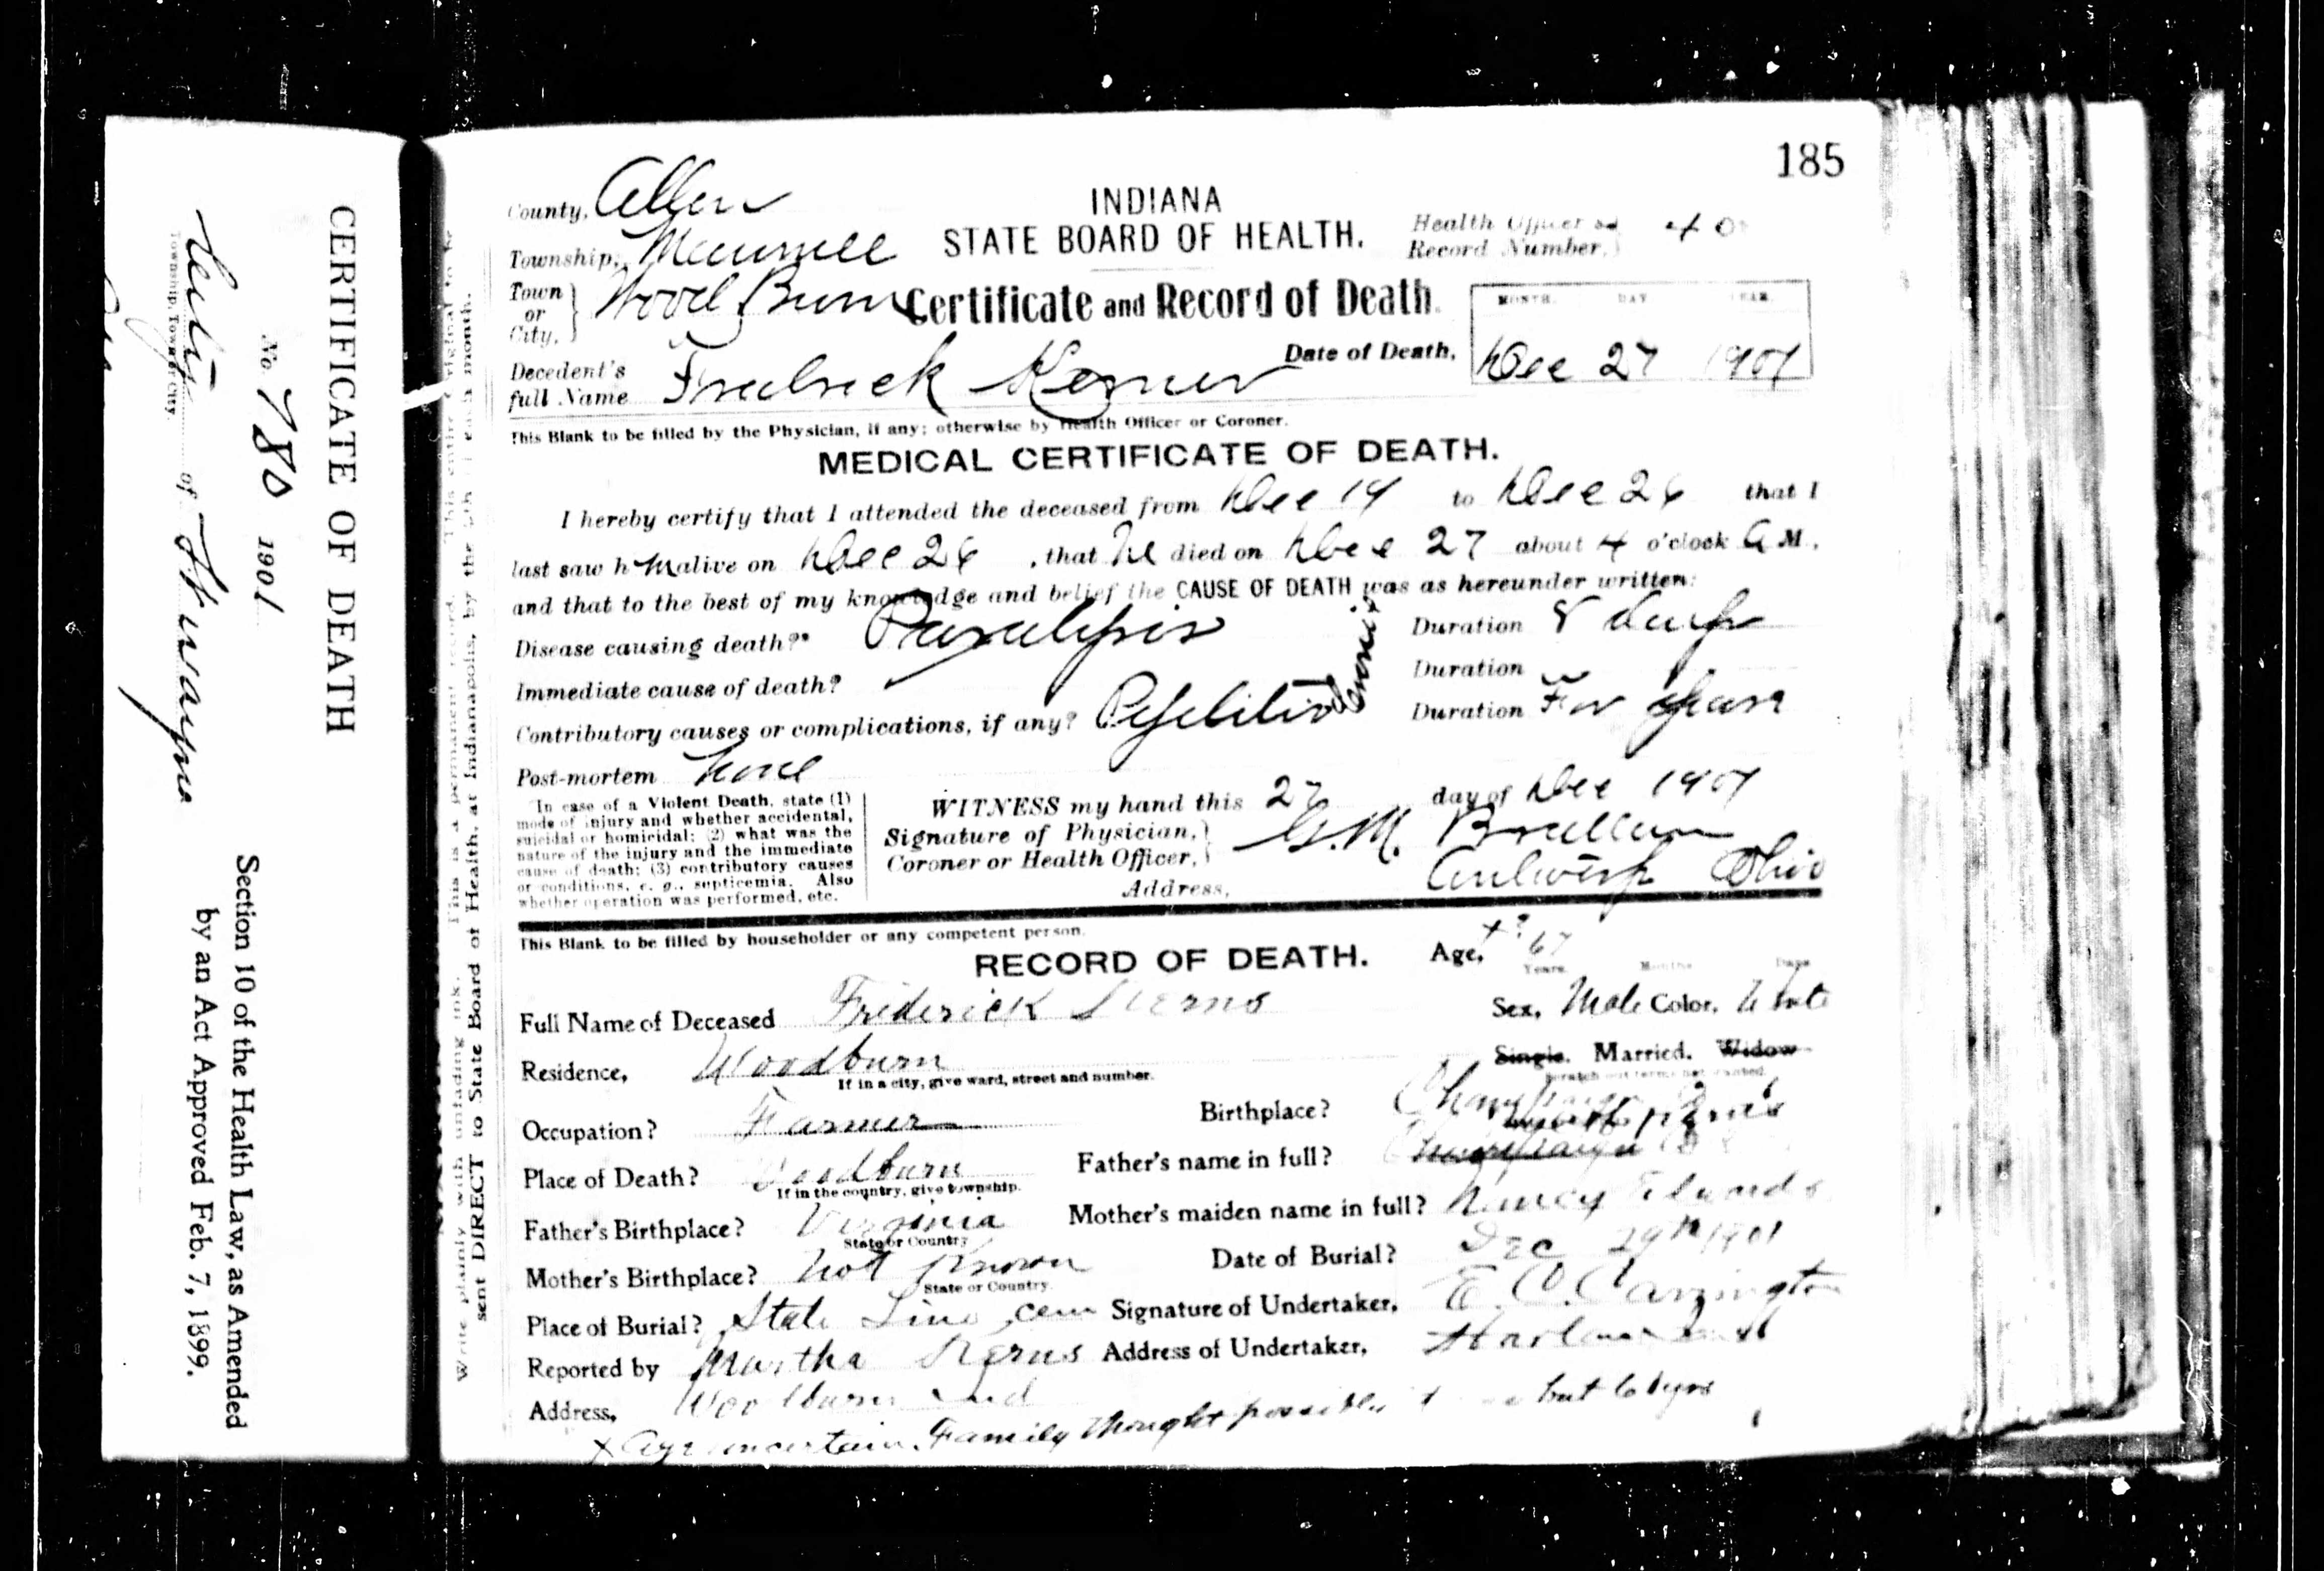 185
County, Allen
INDIANA
Township, Maumee
STATE BOARD OF HEALTH.
Health Officer's Record Number, 40
Town or City, Wood Burn
Certificate and Record of Death.
MONTH. DAY YEAR.
Date of Death, Dec 27 1901
Decedent's full Name Fredrick
This Blank to be filled by the Physician, if any; otherwise by Health Officer or Coroner.
MEDICAL CERTIFICATE OF DEATH.
I hereby certify that I attended the deceased from Dec 14 to Dec 26 that I
last saw him alive on Dec 26, that he died on Dec 27 about 4 o'clock A M.
and that to the best of my knowledge and belief the CAUSE OF DEATH was as hereunder written:
Disease causing death?* Paralysis Duration 8 days
Immediate cause of death? Duration
Contributory causes or complications, if any? Duration
Post-mortem None
In case of a Violent Death, state (1)
mode of injury and whether accidental,
suicidal or homicidal; (2) what was the
nature of the injury and the immediate
cause of death; (3) contributory causes
or conditions, e. g., septicemia. Also
whether operation was performed, etc.
WITNESS my hand this 27 day of Dec 1901
Signature of Physician, Coroner or Health Officer, G.M.
Address, Antwerp Ohio
This Blank to be filled by householder or any competent person.
RECORD OF DEATH.
Age, x? 67
Years. Months Days
Full Name of Deceased Friderick Kerns
Sex, Male Color, White
Residence, Woodburn
If in a city, give ward, street and number.
Single. Married. Widow
Scratch out terms not wanted.
Occupation? Farmer
Birthplace?
Place of Death? Woodburn
If in the country, give township.
Father's name in full?
Father's Birthplace? Virginia
State or Country
Mother's maiden name in full? Nancy Edwards
Mother's Birthplace? Not Known
State or Country.
Date of Burial? Dec 29th 1901
Place of Burial? State Line cem
Signature of Undertaker, E. O. Carrington
Reported by Martha Kerns
Address of Undertaker, Harlan Ind
Address, Woodburn Ind
x Age uncertain. Family thought possible but 61 yrs
CERTIFICATE OF DEATH
No. 780 1901
of Ft Wayne
Township, Town or City.
Section 10 of the Health Law, as Amended
by an Act Approved Feb. 7, 1899.
Write plainly with unfading ink. This is a permanent record.
sent DIRECT to State Board of Health, at Indianapolis, by the each month.